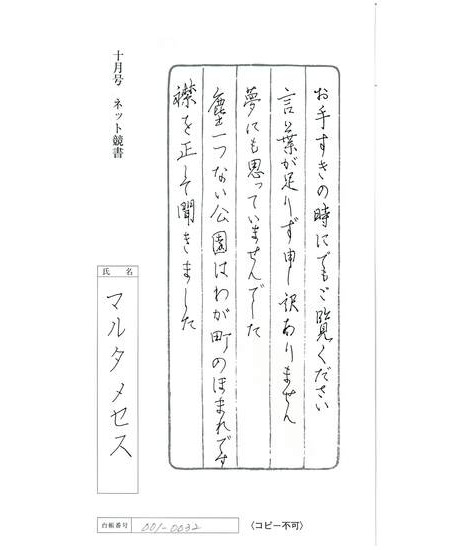 お手すきの時にでもご覧ください
言葉が足りず申し訳ありません
夢にも思っていませんでした
塵一つない公園はわが町のほまれです
襟を正して聞きました
十月号　ネット競書
氏名
マルタ メセス
台帳番号 001-0032
〈コピー不可〉